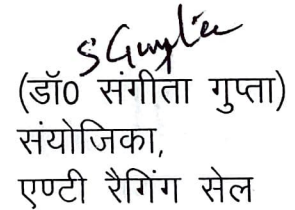 S Gupta
(डॉ0 संगीता गुप्ता)
संयोजिका,
एण्टी रैगिंग सेल